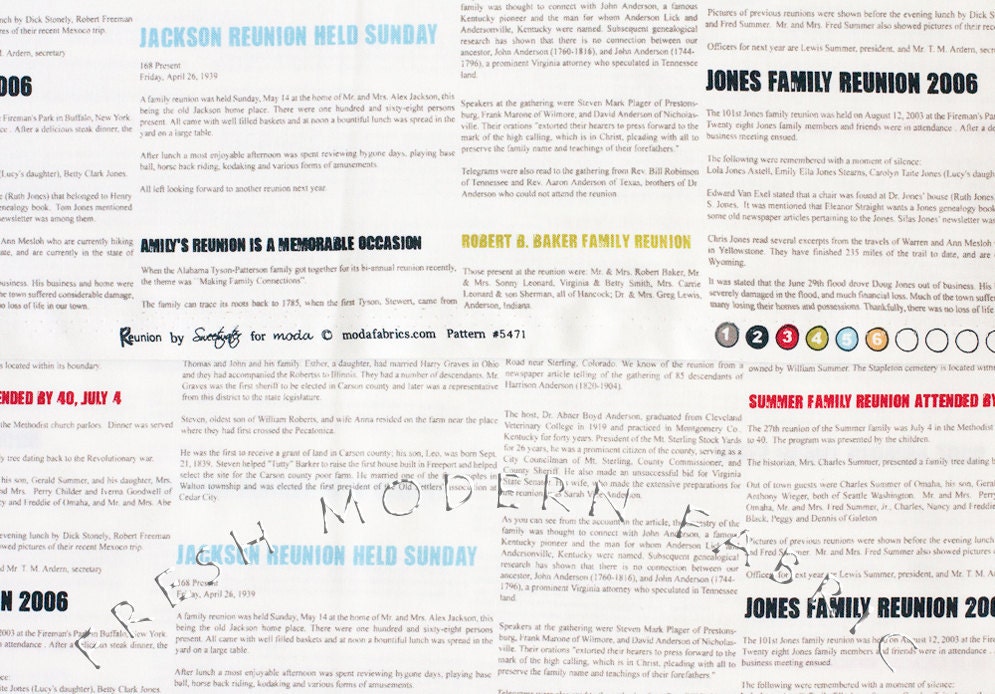 nch by Dick Stonely, Robert Freeman
es of their recent Mexoco trip.
M. Ardern, secretary
006
Fireman's Park in Buffalo, New York
ce . After a delicious steak dinner, the
(Lucy's daughter), Betty Clark Jones.
e (Ruth Jones) that belonged to Henry
enealogy book. Tom Jones mentioned
newsletter was among them.
Ann Mesloh who are currently hiking
ate, and are currently in the state of
business. His business and home were
he town suffered considerable damage,
o loss of life in our town.
JACKSON REUNION HELD SUNDAY
168 Present
Friday, April 26, 1939
A family reunion was held Sunday, May 14 at the home of Mr. and Mrs. Alex Jackson, this
being the old Jackson home place. There were one hundred and sixty-eight persons
present. All came with well filled baskets and at noon a bountiful lunch was spread in the
yard on a large table.
After lunch a most enjoyable afternoon was spent reviewing bygone days, playing base
ball, horse back riding, kodaking and various forms of amusements.
All left looking forward to another reunion next year.
AMILY'S REUNION IS A MEMORABLE OCCASION
When the Alabama Tyson-Patterson family got together for its bi-annual reunion recently,
the theme was "Making Family Connections".
The family can trace its roots back to 1785, when the first Tyson, Stewert, came from
family was thought to connect with John Anderson, a famous
Kentucky pioneer and the man for whom Anderson Lick and
Andersonville, Kentucky were named. Subsequent genealogical
research has shown that there is no connection between our
ancestor, John Anderson (1760-1816), and John Anderson (1744-
1796), a prominent Virginia attorney who speculated in Tennessee
land.
Speakers at the gathering were Steven Mark Plager of Prestons-
burg, Frank Marone of Wilmore, and David Anderson of Nicholas-
ville. Their orations "extorted their hearers to press forward to the
mark of the high calling, which is in Christ, pleading with all to
preserve the family name and teachings of their forefathers."
Telegrams were also read to the gathering from Rev. Bill Robinson
of Tennessee and Rev. Aaron Anderson of Texas, brothers of Dr
Anderson who could not attend the reunion.
ROBERT B. BAKER FAMILY REUNION
Those present at the reunion were: Mr. & Mrs. Robert Baker, Mr
& Mrs. Sonny Leonard, Virginia & Betty Smith, Mrs. Carrie
Leonard & son Sherman, all of Hancock; Dr. & Mrs. Greg Lewis,
Anderson, Indiana.
Pictures of previous reunions were shown before the evening lunch by Dick S
and Fred Summer. Mr. and Mrs. Fred Summer also showed pictures of their
Officers for next year are Lewis Summer, president, and Mr. T. M. Ardern, secr
JONES FAMILY REUNION 2006
The 101st Jones family reunion was held on August 12, 2003 at the Fireman's Pa
Twenty eight Jones family members and friends were in attendance . After a de
business meeting ensued.
The following were remembered with a moment of silence:
Lola Jones Astell, Emily Ella Jones Stearns, Carolyn Taite Jones (Lucy's daugh
Edward Van Exel stated that a chair was found at Dr. Jones' house (Ruth Jones
S. Jones. It was mentioned that Eleanor Straight wants a Jones genealogy book
some old newspaper articles pertaining to the Jones. Silas Jones' newsletter wa
Chris Jones read several excerpts from the travels of Warren and Ann Mesloh
in Yellowstone. They have finished 235 miles of the trail to date, and are
Wyoming.
It was stated that the June 29th flood drove Doug Jones out of business. His
severely damaged in the flood, and much financial loss. Much of the town suffe
many losing their homes and possessions. Thankfully, there was no loss of life
Reunion by Sweetwater for moda © modafabrics.com Pattern #5471
1 2 3 4 5 6
s located within its boundary.
ENDED BY 40, JULY 4
the Methodist church parlors. Dinner was served
ly tree dating back to the Revolutionary war.
his son, Gerald Summer, and his daughter, Mrs.
nd Mrs. Perry Childer and Iverna Gondwell of
y and Freddie of Omaha, and Mr. and Mrs. Abe
evening lunch by Dick Stonely, Robert Freeman
owed pictures of their recent Mexoco trip.
nd Mr T. M. Ardern, secretary
N 2006
2003 at the Fireman's Park in Buffalo, New York
n attendance . After a delicious steak dinner, the
ite Jones (Lucy's daughter), Betty Clark Jones.
Thomas and John and his family. Esther, a daughter, had married Harry Graves in Ohio
and they had accompanied the Robertss to Illinois. They had a number of descendants. Mr.
Graves was the first sheriff to be elected in Carson county and later was a representative
from this district to the state legislature.
Steven, oldest son of William Roberts, and wife Anna resided on the farm near the place
where they had first crossed the Pecatonica.
He was the first to receive a grant of land in Carson county; his son, Leo, was born Sept.
21, 1839. Steven helped "Tutty" Barker to raise the first house built in Freeport and helped
select the site for the Carson county poor farm. He married one of the couples in
Walton township and was elected the first president of the Old Settlers' association at
Cedar City.
JACKSON REUNION HELD SUNDAY
168 Present
Friday, April 26, 1939
A family reunion was held Sunday, May 14 at the home of Mr. and Mrs. Alex Jackson, this
being the old Jackson home place. There were one hundred and sixty-eight persons
present. All came with well filled baskets and at noon a bountiful lunch was spread in the
yard on a large table.
After lunch a most enjoyable afternoon was spent reviewing bygone days, playing base
ball, horse back riding, kodaking and various forms of amusements.
Road near Sterling, Colorado. We know of the reunion from a
newspaper article telling of the gathering of 85 descendants of
Harrison Anderson (1820-1904).
The host, Dr. Abner Boyd Anderson, graduated from Cleveland
Veterinary College in 1919 and practiced in Montgomery Co.
Kentucky for forty years. President of the Mt. Sterling Stock Yards
for 26 years, he was a prominent citizen of the county, serving as a
City Councilman of Mt. Sterling, County Commissioner, and
County Sheriff. He also made an unsuccessful bid for Virginia
State Senator. His wife, who made the extensive preparations for
the reunion, is Sarah V. Anderson.
As you can see from the account in the article, the ancestry of the
family was thought to connect with John Anderson, a famous
Kentucky pioneer and the man for whom Anderson Lick and
Andersonville, Kentucky were named. Subsequent genealogical
research has shown that there is no connection between our
ancestor, John Anderson (1760-1816), and John Anderson (1744-
1796), a prominent Virginia attorney who speculated in Tennessee
land.
Speakers at the gathering were Steven Mark Plager of Prestons-
burg, Frank Marone of Wilmore, and David Anderson of Nicholas-
ville. Their orations "extorted their hearers to press forward to the
mark of the high calling, which is in Christ, pleading with all to
preserve the family name and teachings of their forefathers."
Telegrams were also read to the gathering from Rev. Bill Robinson
owned by William Summer. The Stapleton cemetery is located within
SUMMER FAMILY REUNION ATTENDED BY
The 27th reunion of the Summer family was July 4 in the Methodist
to 40. The program was presented by the children.
The historian, Mrs. Charles Summer, presented a family tree dating b
Out of town guests were Charles Summer of Omaha, his son, Geral
Anthony Wieger, both of Seattle Washington. Mr. and Mrs. Perry
Omaha, Mr. and Mrs. Fred Summer, Jr., Charles, Nancy and Freddie
Black, Peggy and Dennis of Galeton
Pictures of previous reunions were shown before the evening lunch
and Fred Summer. Mr. and Mrs. Fred Summer also showed pictures o
Officers for next year are Lewis Summer, president, and Mr. T. M. A
JONES FAMILY REUNION 200
The 101st Jones family reunion was held on August 12, 2003 at the Fire
Twenty eight Jones family members and friends were in attendance .
business meeting ensued.
The following were remembered with a moment of silence:
FRESH MODERN FABRIC